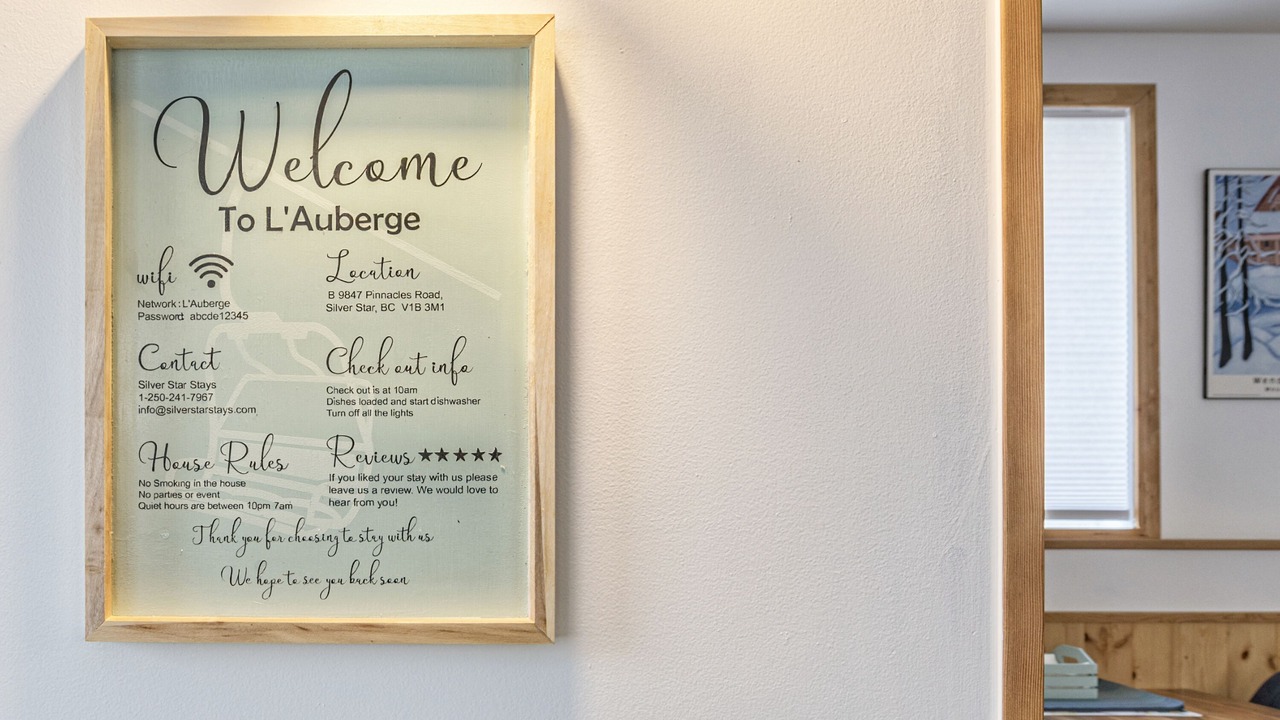 Welcome
To L'Auberge
wifi
Network: L'Auberge
Password: abcde12345
Location
B 9847 Pinnacles Road,
Silver Star, BC V1B 3M1
Contact
Silver Star Stays
1-250-241-7967
info@silverstarstays.com
Check out info
Check out is at 10am
Dishes loaded and start dishwasher
Turn off all the lights
House Rules
No Smoking in the house
No parties or event
Quiet hours are between 10pm 7am
Reviews ★★★★★
If you liked your stay with us please
leave us a review. We would love to
hear from you!
Thank you for choosing to stay with us
We hope to see you back soon